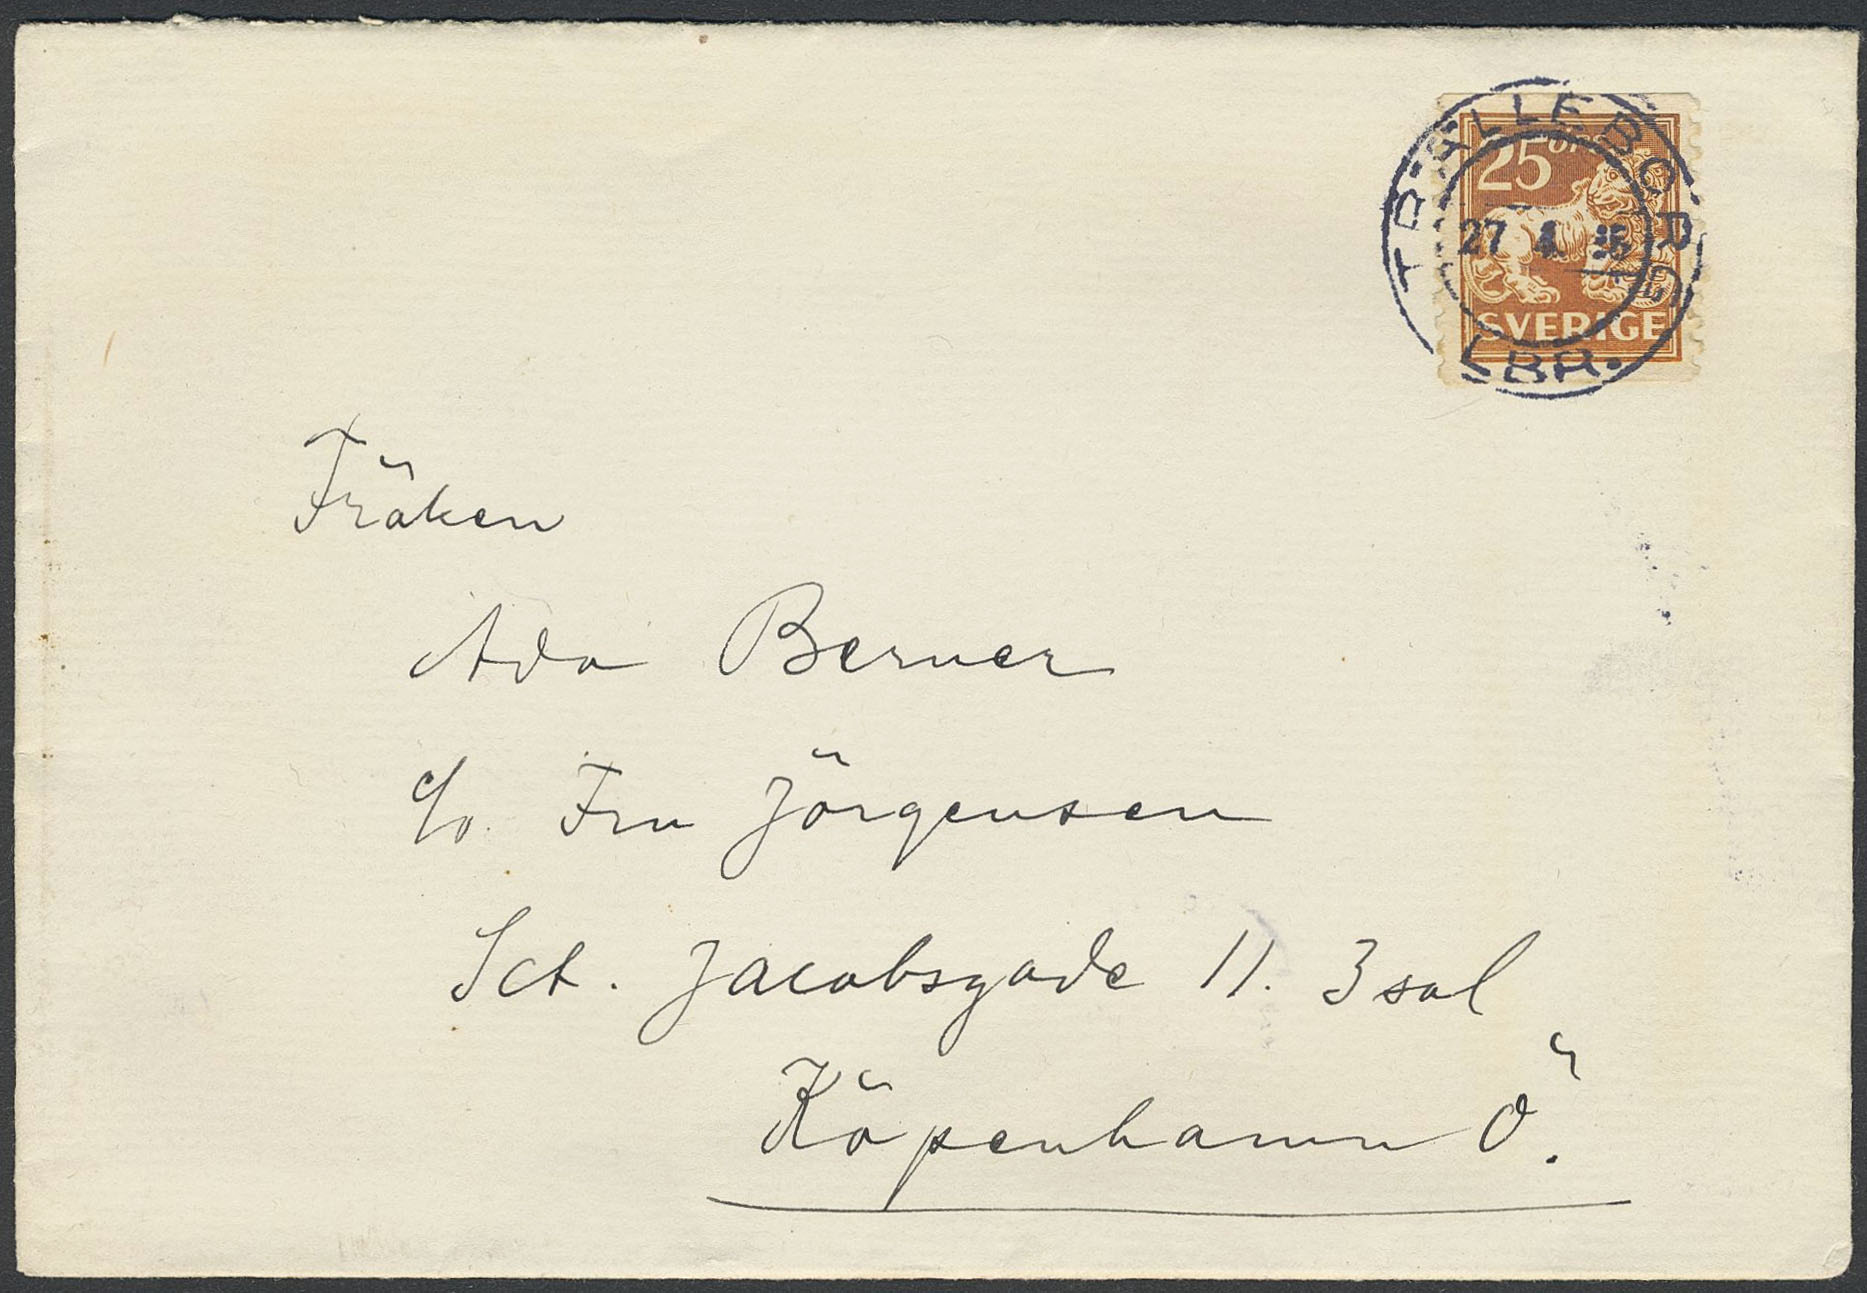 25 ÖRE
SVERIGE
TRÄLLEBORG
27 4
LBR.
Fröken
Ada Berner
c/o. Fru Jörgensen
Sct. Jacobsgade 11. 3 sal
Köpenhamn Ö.